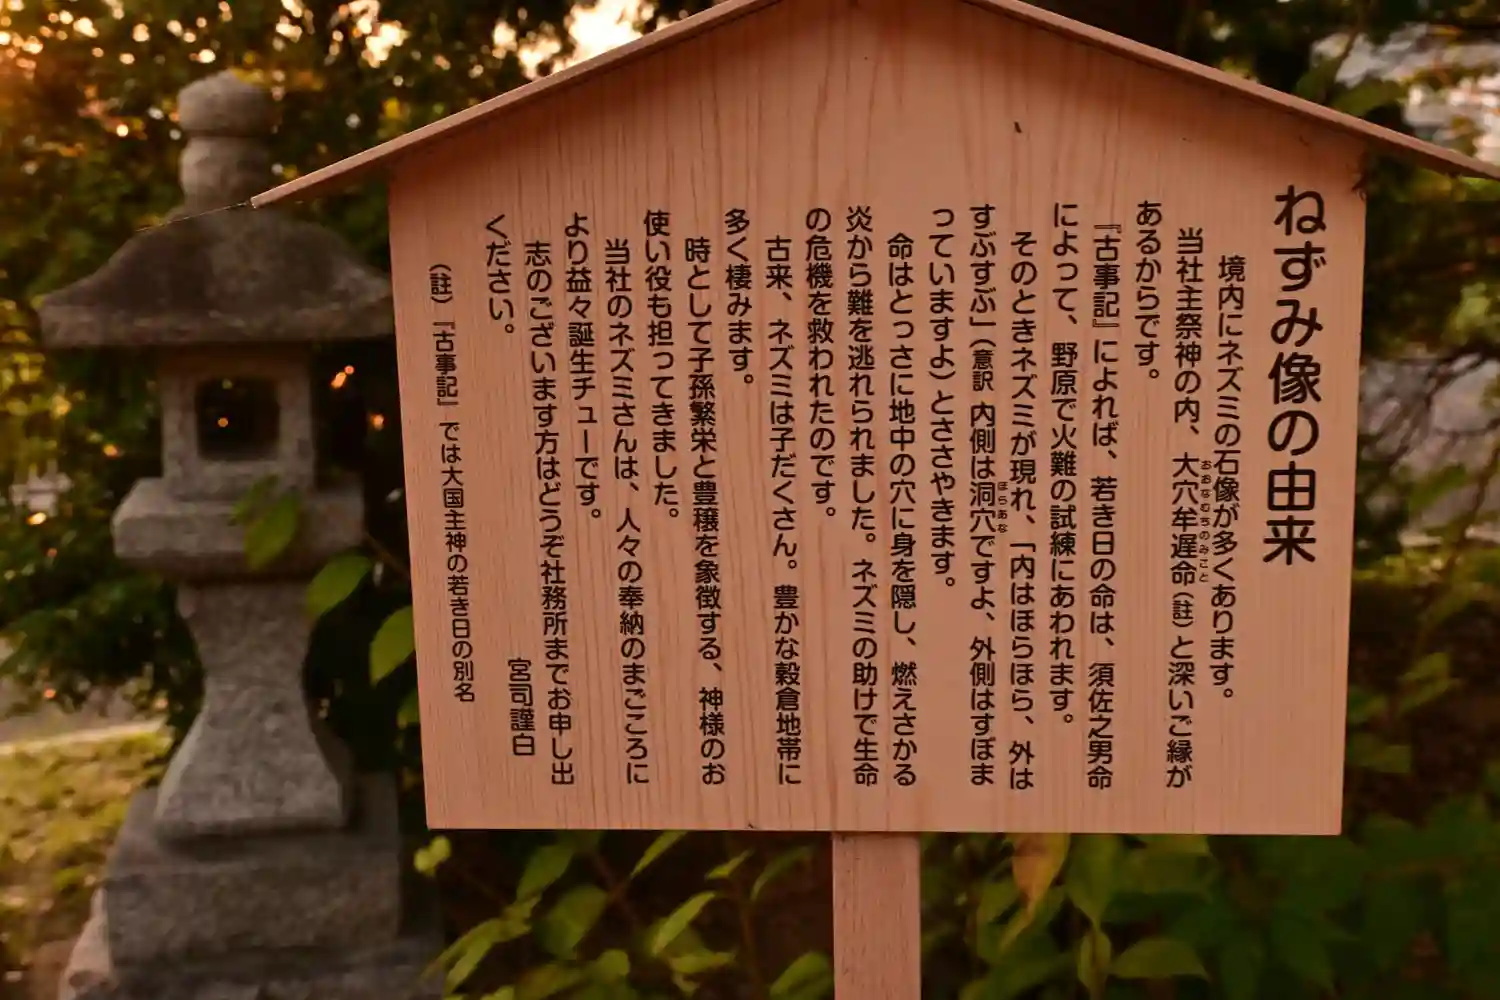 ねずみ像の由来
境内にネズミの石像が多くあります。
当社主祭神の内、大穴牟遅命（註）と深いご縁が
おおなむちのみこと
あるからです。
『古事記』によれば、若き日の命は、須佐之男命
によって、野原で火難の試練にあわれます。
そのときネズミが現れ、「内はほらほら、外は
すぶすぶ」（意訳 内側は洞穴ですよ、外側はすぼま
ほらあな
っていますよ）とささやきます。
命はとっさに地中の穴に身を隠し、燃えさかる
炎から難を逃れられました。ネズミの助けで生命
の危機を救われたのです。
古来、ネズミは子だくさん。豊かな穀倉地帯に
多く棲みます。
時として子孫繁栄と豊穣を象徴する、神様のお
使い役も担ってきました。
当社のネズミさんは、人々の奉納のまごころに
より益々誕生チューです。
志のございます方はどうぞ社務所までお申し出
ください。
宮司謹白
（註）『古事記』では大国主神の若き日の別名